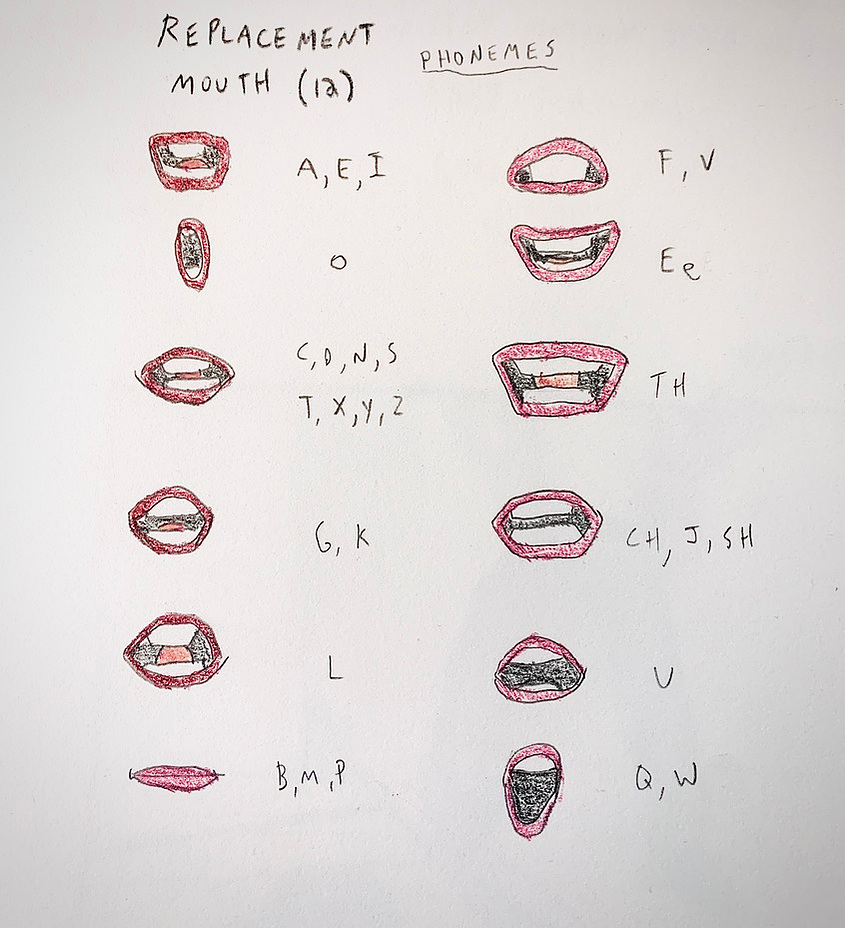 REPLACEMENT
MOUTH (12)
PHONEMES
A, E, I
O
C, D, N, S
T, X, Y, Z
G, K
L
B, M, P
F, V
Ee
TH
CH, J, SH
U
Q, W